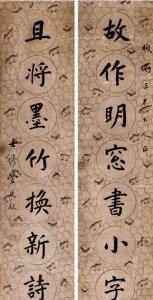 故作明窗書小字
且將墨竹換新詩